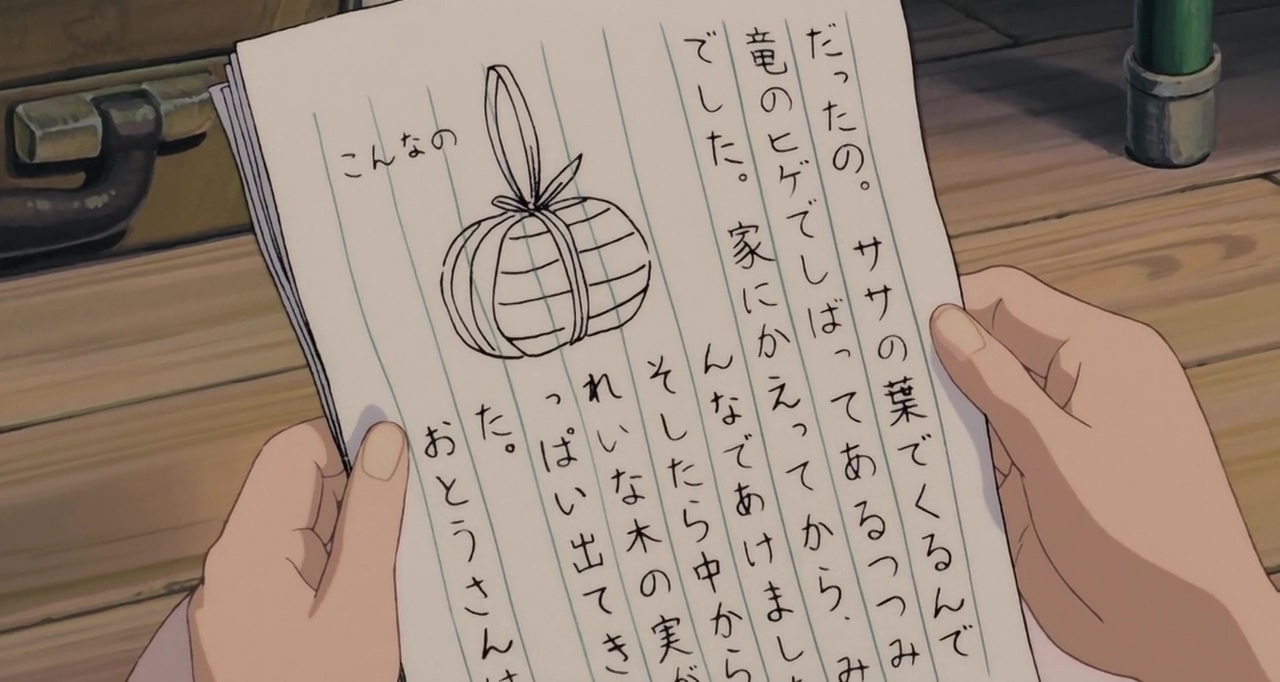 だったの。ササの葉でくるんで
竜のヒゲでしばってあるつつみ
でした。家にかえってから、み
んなであけまし
そしたら中から
れいな木の実が
っぱい出てき
た。
おとうさんは
こんなの